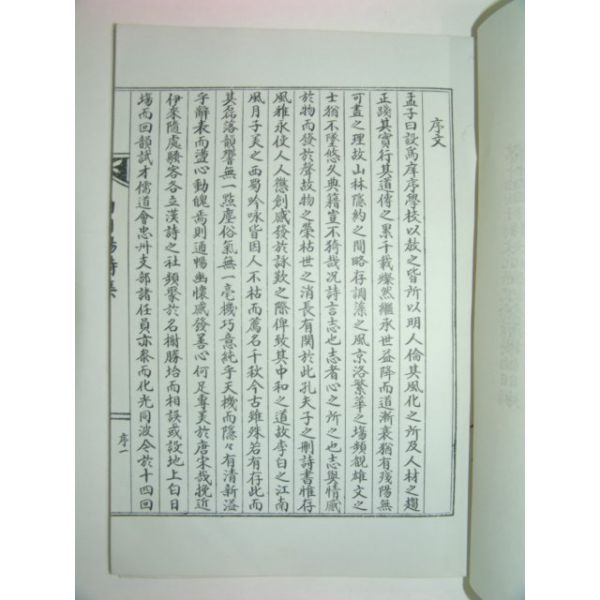 序文
孟子曰設為庠序學校以敎之皆所以明人倫其風化之所及人材之趨
正踐其實行其道傳之累千載燦然繼承世益降而道漸衰猶有殘陽無
可盡之理故山林隱約之間略存調藻之風京洛繁華之場頻覩雄文之
士猶不墜悠久典籍豈不猗哉况詩言志也志者心之所之也志與情感
於物而發於聲故物之榮枯世之消長有關於此孔夫子之刪詩書惟存
風雅永使人人懲創感發於詠歎之際俾致其中和之道故李白之江南
風月子美之西蜀吟咏皆因人不枯而薦名千秋今古雖殊若有存此而
其磊落韻響無一點塵俗氣無一毫機巧意純乎天機而隱々有清新溢
乎辭表而盪心動魄焉則通暢幽懷感發善心何足專美於唐宋哉挽近
伊來隨處騷客各立漢詩之社頻聚於名榭勝坮而相誤或設地上白日
場而回韻試才儒道會忠州支部諸任員亦參而化光同波今於十四回
詩集
序一